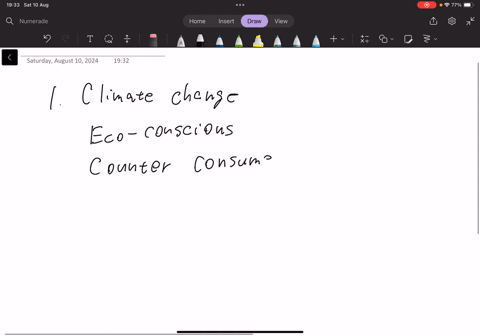 19:33 Sat 10 Aug
77%
Numerade
Home Insert Draw View
Saturday, August 10, 2024 19:32
1. Climate change
Eco-conscious
Counter consum